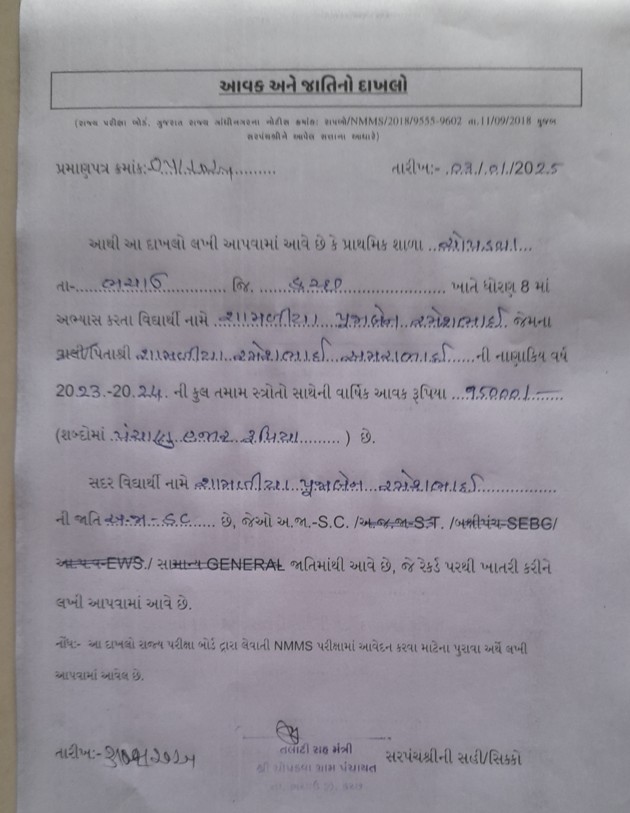 આવક અને જાતિનો દાખલો
(રાજ્ય પરીક્ષા બોર્ડ, ગુજરાત રાજ્ય ગાંધીનગરના નોટીસ ક્રમાંક: રાપબો/NMMS/2018/9555-9602 તા.11/09/2018 મુજબ
સરપંચશ્રીને આપેલ સત્તાના આધારે)
પ્રમાણપત્ર ક્રમાંક:- તારીખ:- .03./.01./2025
આથી આ દાખલો લખી આપવામાં આવે છે કે પ્રાથમિક શાળા ..ચોપડવા...
તા-......ભચાઉ.............. જિ. ....કચ્છ.................... ખાતે ધોરણ 8 માં
અભ્યાસ કરતા વિદ્યાર્થી નામે ..શામળીયા...પુજાબેન..રમેશભાઈ. જેમના
વાલી/પિતાશ્રી .શામળીયા...રમેશભાઈ.......ની નાણાકિય વર્ષ
2023.-20.24. ની કુલ તમામ સ્ત્રોતો સાથેની વાર્ષિક આવક રૂપિયા
(શબ્દોમાં હજાર..રૂપિયા......... ) છે.
સદર વિદ્યાર્થી નામે ..શામળીયા..પુજાબેન...રમેશભાઈ................
ની જાતિ .અ.જા.-S.C...... છે, જેઓ અ.જા.-S.C. /અ.જ.જા-S.T. /બક્ષીપંચ-SEBG/
EWS./ સામાન્ય GENERAL જાતિમાંથી આવે છે, જે રેકર્ડ પરથી ખાતરી કરીને
લખી આપવામાં આવે છે.
નોંધ:- આ દાખલો રાજ્ય પરીક્ષા બોર્ડ દ્વારા લેવાતી NMMS પરીક્ષામાં આવેદન કરવા માટેના પુરાવા અર્થે લખી
આપવામાં આવેલ છે.
તલાટી સહ મંત્રી
તારીખ:- સરપંચશ્રીની સહી/સિક્કો
શ્રી ચોપડવા ગ્રામ પંચાયત